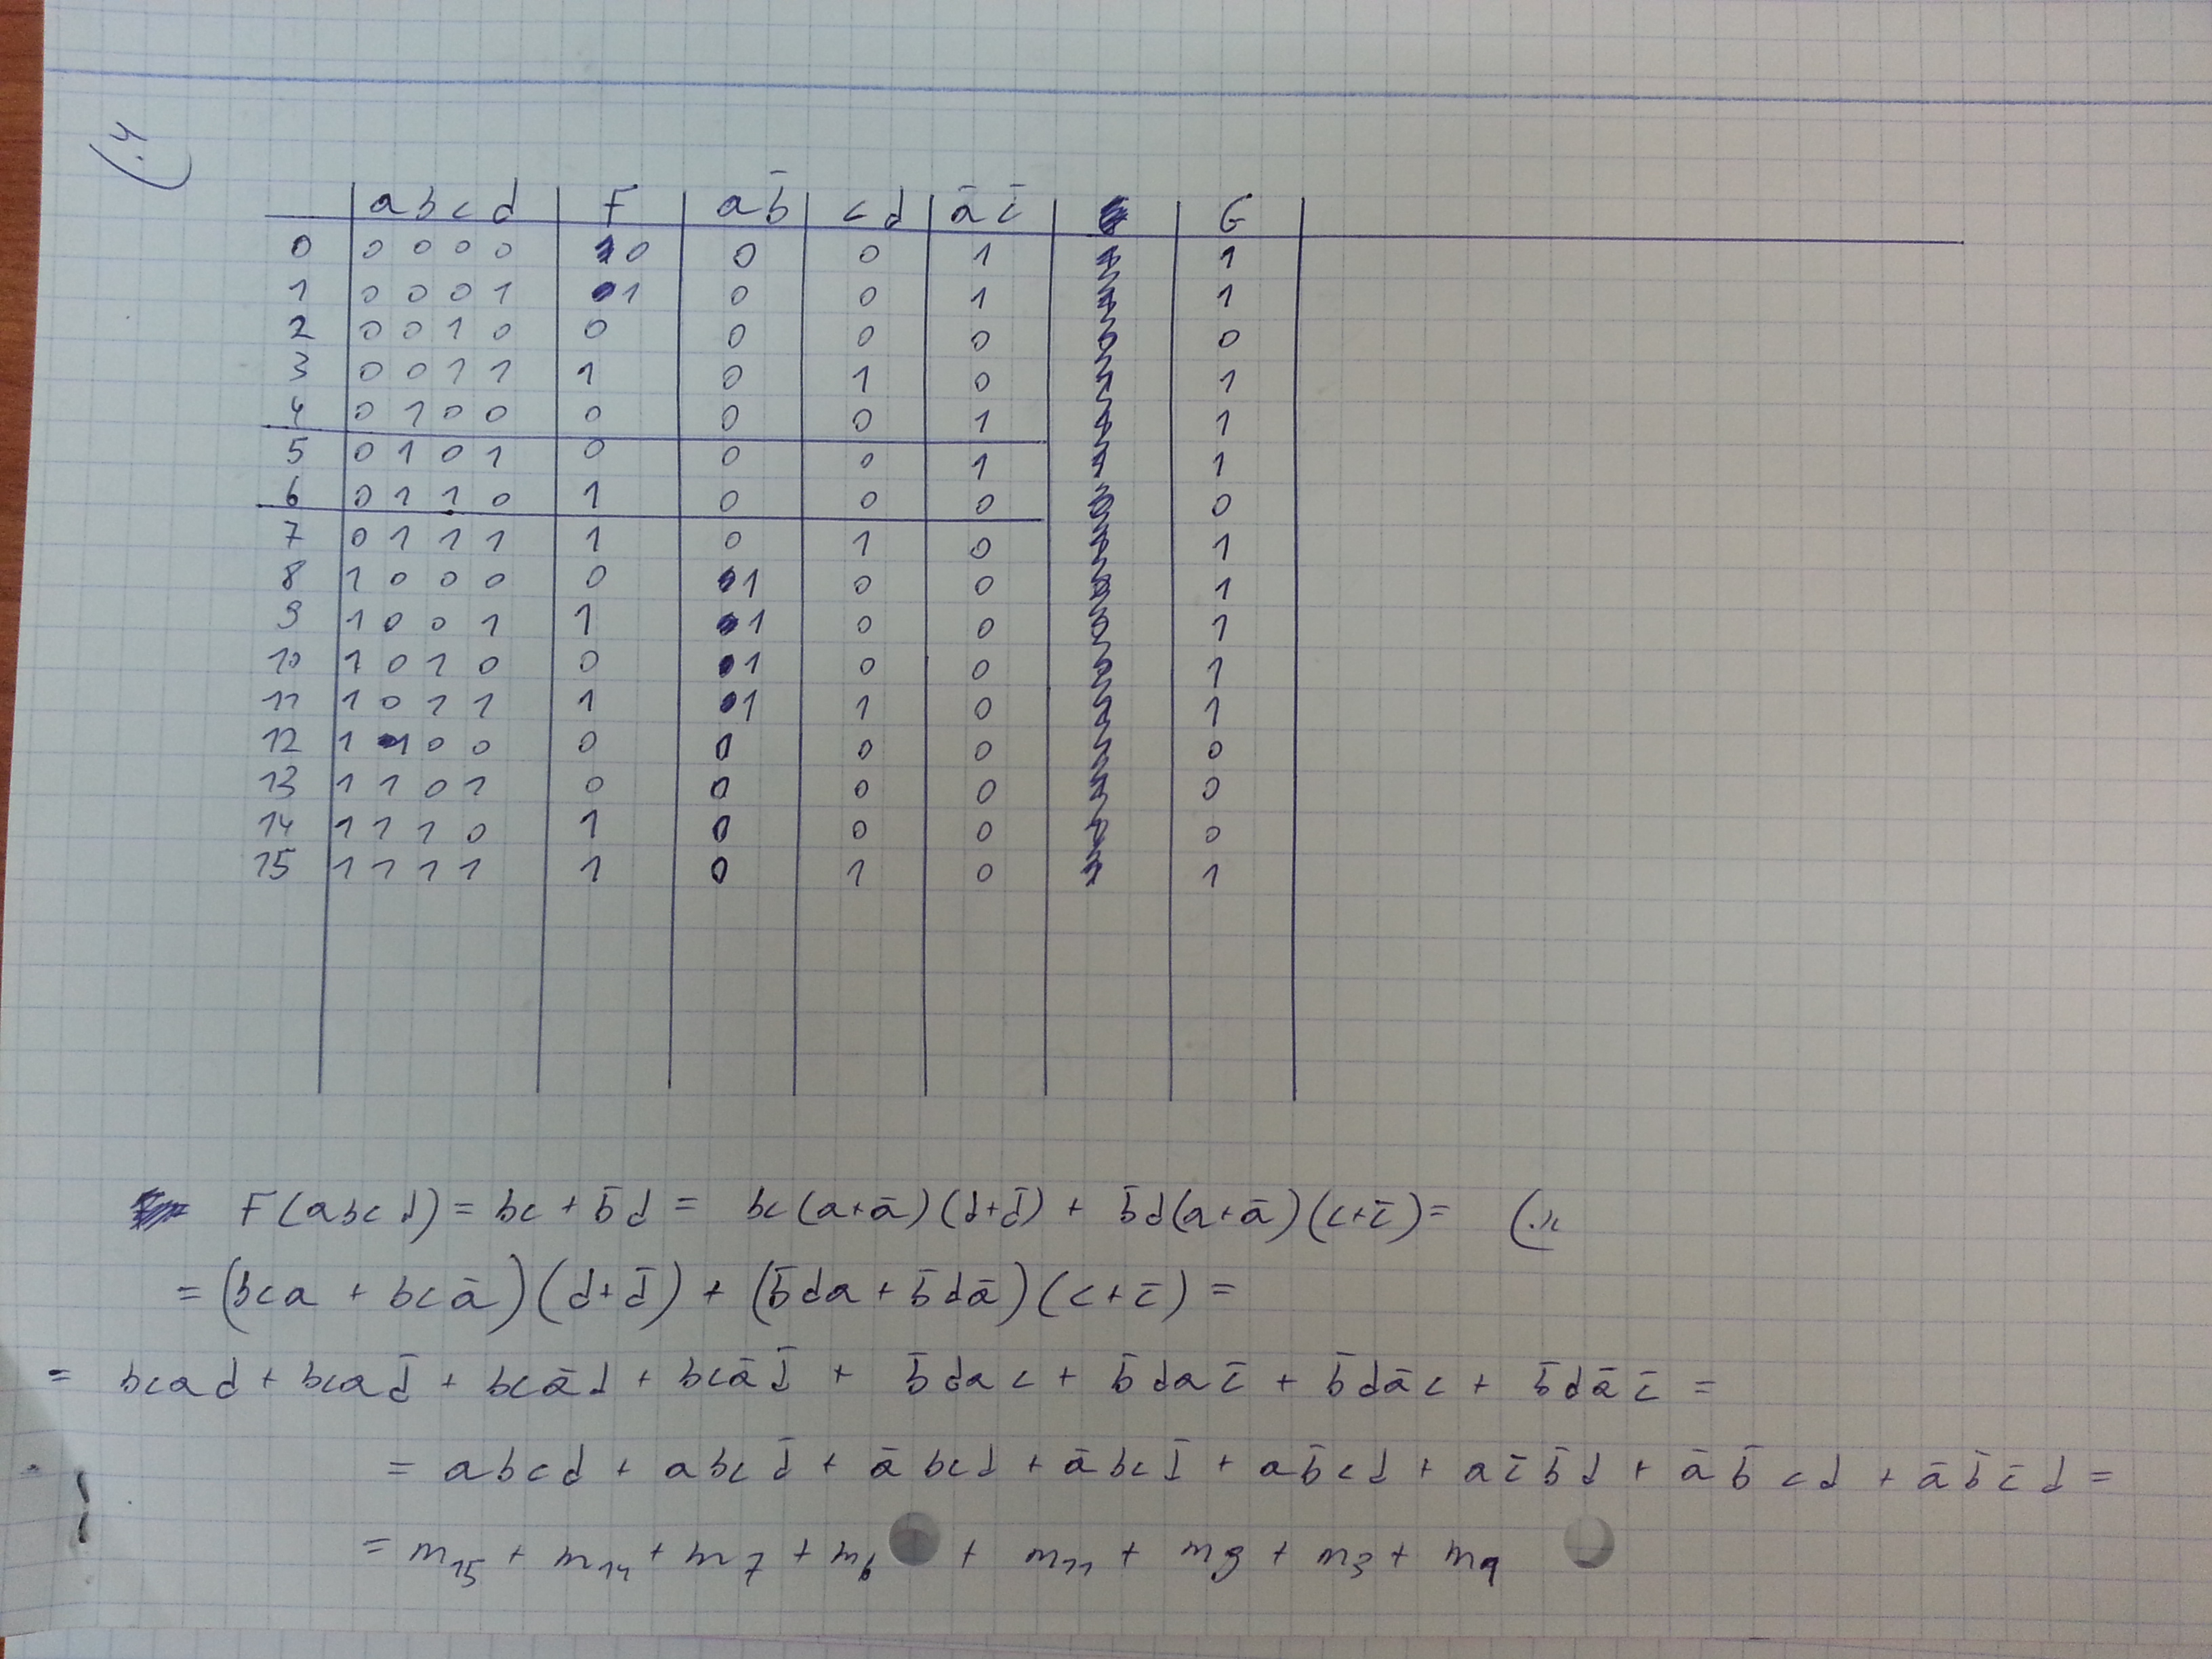 4.)
a b c d F a b̄ c d ā c̄ G
0 0 0 0 0 0 0 0 1 1
1 0 0 0 1 1 0 0 1 1
2 0 0 1 0 0 0 0 0 0
3 0 0 1 1 1 0 1 0 1
4 0 1 0 0 0 0 0 1 1
5 0 1 0 1 0 0 0 1 1
6 0 1 1 0 1 0 0 0 0
7 0 1 1 1 1 0 1 0 1
8 1 0 0 0 0 1 0 0 1
9 1 0 0 1 1 1 0 0 1
10 1 0 1 0 0 1 0 0 1
11 1 0 1 1 1 1 1 0 1
12 1 1 0 0 0 0 0 0 0
13 1 1 0 1 0 0 0 0 0
14 1 1 1 0 1 0 0 0 0
15 1 1 1 1 1 0 1 0 1
F(abcd) = bc + b̄d = bc(a+ā)(d+d̄) + b̄d(a+ā)(c+c̄) =
= (bca + bcā)(d+d̄) + (b̄da + b̄dā)(c+c̄) =
= bcad + bcad̄ + bcād + bcād̄ + b̄dac + b̄dac̄ + b̄dāc + b̄dāc̄ =
= abcd + abcd̄ + ābcd + ābcd̄ + ab̄cd + ac̄b̄d + āb̄cd + āb̄c̄d =
= m15 + m14 + m7 + m6 + m11 + m9 + m3 + m1